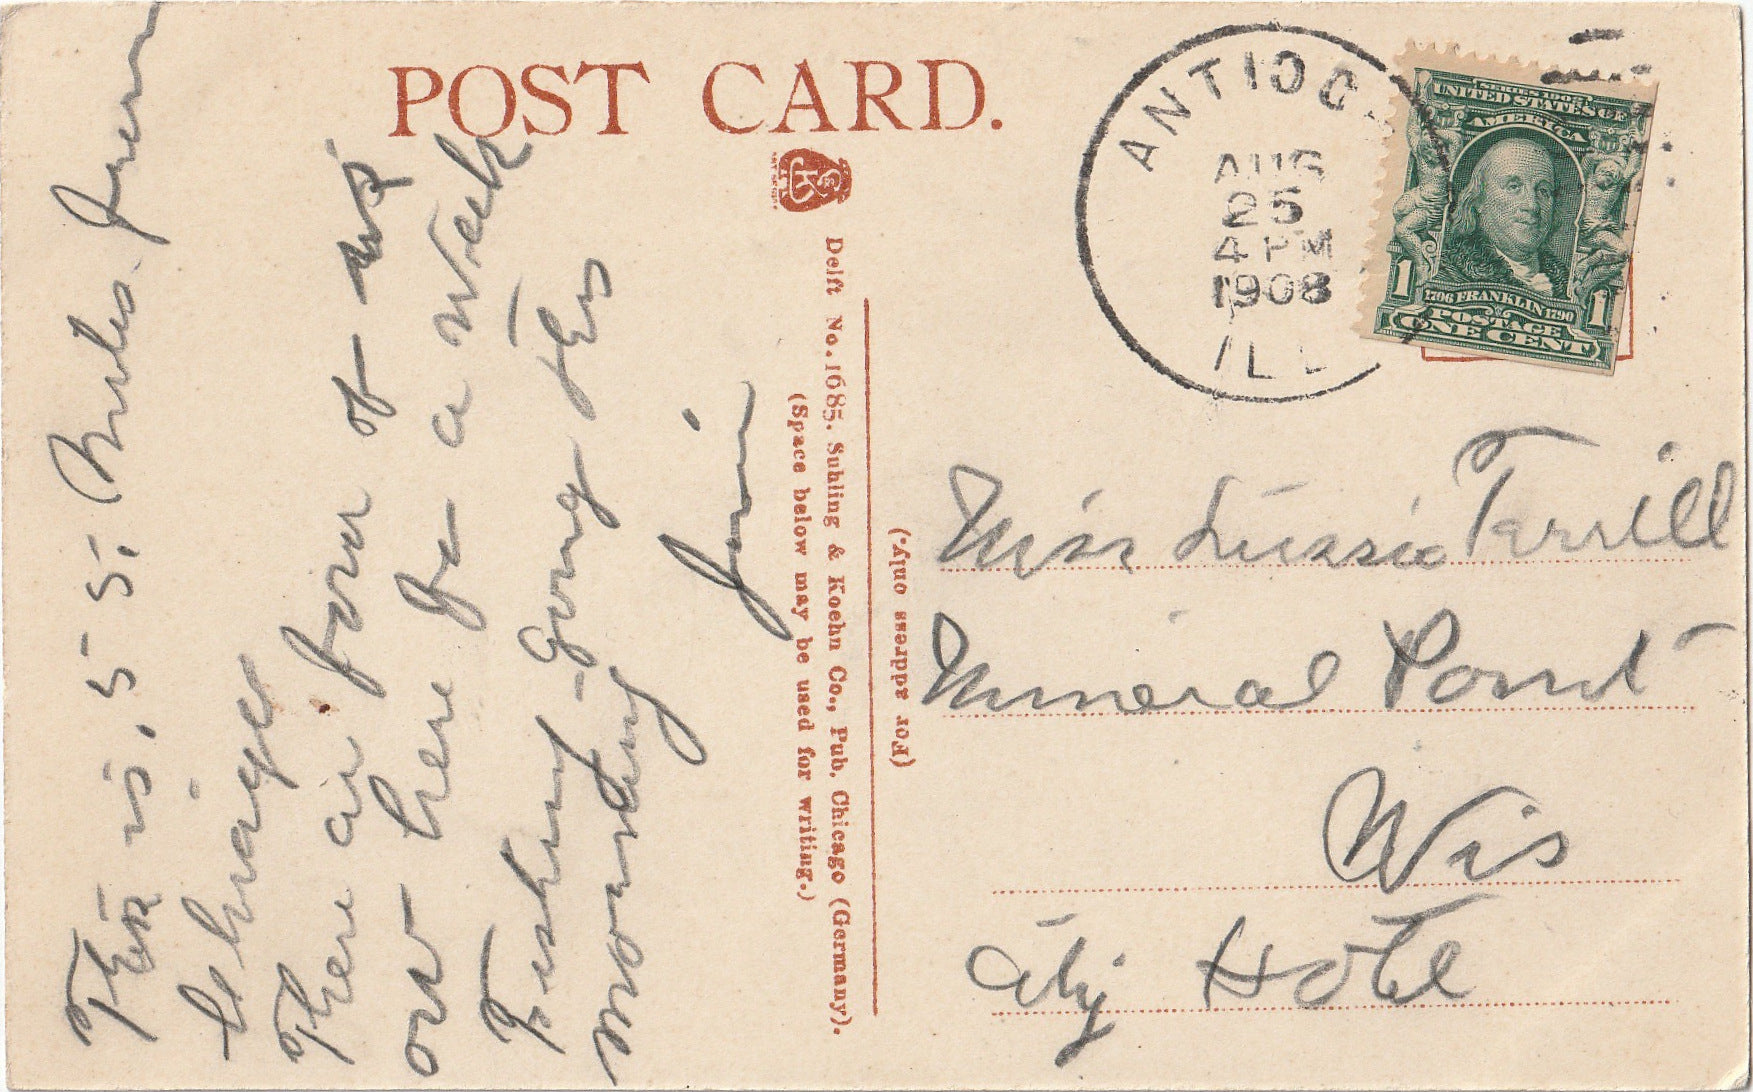 POST CARD.
ANTIOC
AUG
25
4 PM
1908
ILL
SERIES 1902
UNITED STATES OF
AMERICA
1706 FRANKLIN 1790
POSTAGE
ONE CENT
1 1
This is, 55, Miles from
Chicago
There are four of us
out here for a week
Fishing - going this
morning
Delft No. 1685. Suhling & Koehn Co., Pub. Chicago (Germany).
(Space below may be used for writing.)
(For address only.)
Miss Lizzie Terrill
Mineral Point
Wis
City Hotel